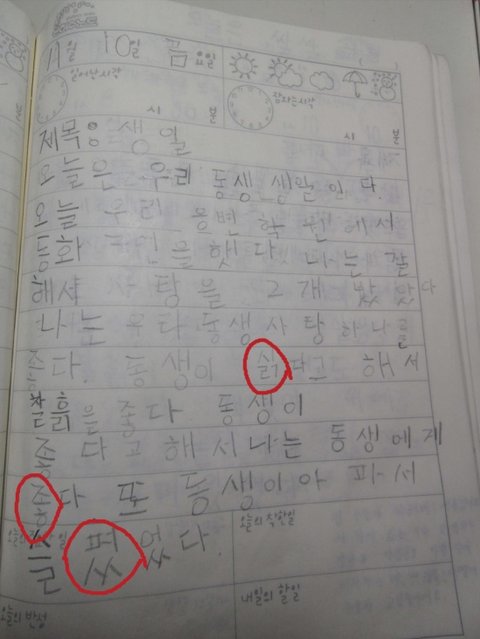 11월 10일 금요일
일어난시각 잠자는시각
시 분 시 분
제목: 생일
오늘은 우리 동생 생일이다.
오늘 우리 웅변 학원에서
동화 구연을 햇다 나는 잘
해서 사탕을 2개 받았다
나는 동생 사탕 하나를
좋다. 동생이 싥다고 해서
찰흙을 좋다 동생이
좋다고 해서 나는 동생에게
좋다 또 동생이 아파서
슬펐었다.
오늘의 착한일
오늘의 반성
내일의 할일